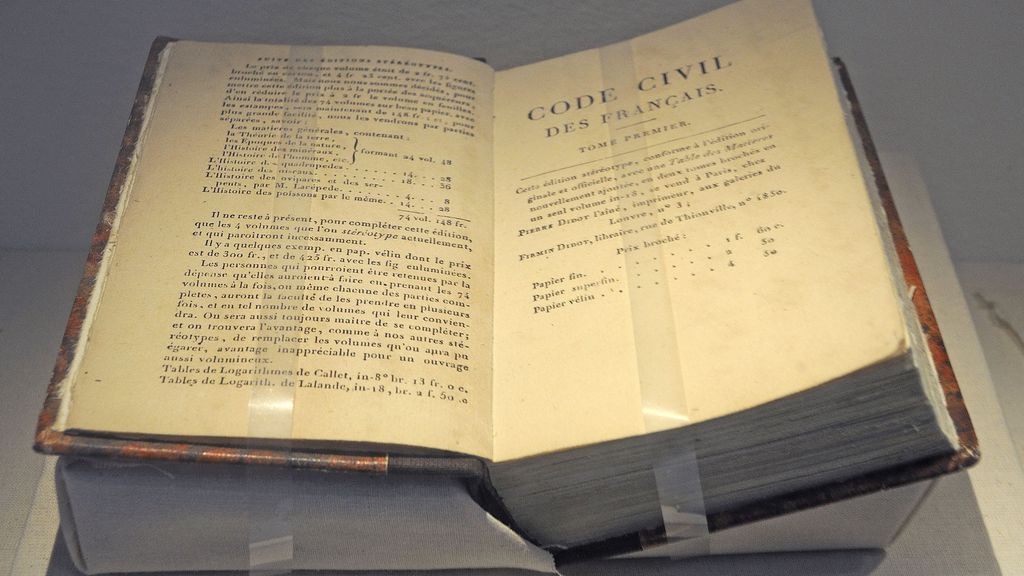 SUITE DES ÉDITIONS STÉRÉOTYPES.
Le prix de chaque volume étant de 2 fr. 75 cent.
broché en carton, et 4 fr. 25 cent. avec les figures
enluminées. Mais nous nous sommes décidés, pour
mettre cette édition plus à la portée des acquéreurs,
d'en réduire le prix à 2 fr. le volume en feuilles.
Ainsi la totalité des 74 volumes sur beau papier, avec
les estampes, sera maintenant de 148 fr.; et, pour
plus grande facilité, nous les vendrons par parties
séparées, savoir:
Les matieres générales, contenant:
la Théorie de la terre,
les Époques de la nature,
l'Histoire des minéraux,
l'Histoire de l'homme, etc.
formant 24 vol. 48
L'Histoire des quadrupedes . . . . . 14. . . 28
L'Histoire des oiseaux . . . . . 18. . . 36
L'Histoire des ovipares et des ser-
pents, par M. Lacépede. . . . . 4. . . 8
L'Histoire des poissons par le même. . . 14. . . 28
74 vol. 148 fr.
Il ne reste à présent, pour compléter cette édition,
que les 4 volumes que l'on stéréotype actuellement,
et qui paroîtront incessamment.
Il y a quelques exemp. en pap. vélin dont le prix
est de 300 fr., et de 425 fr. avec les fig enluminées.
Les personnes qui pourroient être retenues par la
dépense qu'elles auroient à faire en prenant les 74
volumes à la fois, ou même chacune des parties com-
pletes, auront la faculté de les prendre en plusieurs
fois, et en tel nombre de volumes qui leur convien-
dra. On sera aussi toujours maître de se compléter;
et on trouvera l'avantage, comme à nos autres sté-
réotypes, de remplacer les volumes qu'on aura pu
égarer, avantage inappréciable pour un ouvrage
aussi volumineux.
Tables de Logarithmes de Callet, in-8° br. 13 fr. 0 c.
Tables de Logarith. de Lalande, in-18, br. 2 f. 50 c
CODE CIVIL
DES FRANÇAIS.
TOME PREMIER.
Cette édition stéréotype, conforme à l'édition ori-
ginale et officielle, avec une Table des Matieres
nouvellement ajoutée, en deux tomes brochés en
un seul volume in-18, se vend à Paris, chez
PIERRE DIDOT l'aîné, imprimeur, aux galeries du
Louvre, n° 3;
FIRMIN DIDOT, libraire, rue de Thionville, n° 1850.
Prix broché:
Papier fin. . . . . . 1 f. 60 c.
Papier superfin. . . . . 2 50
Papier vélin . . . . . 4 50